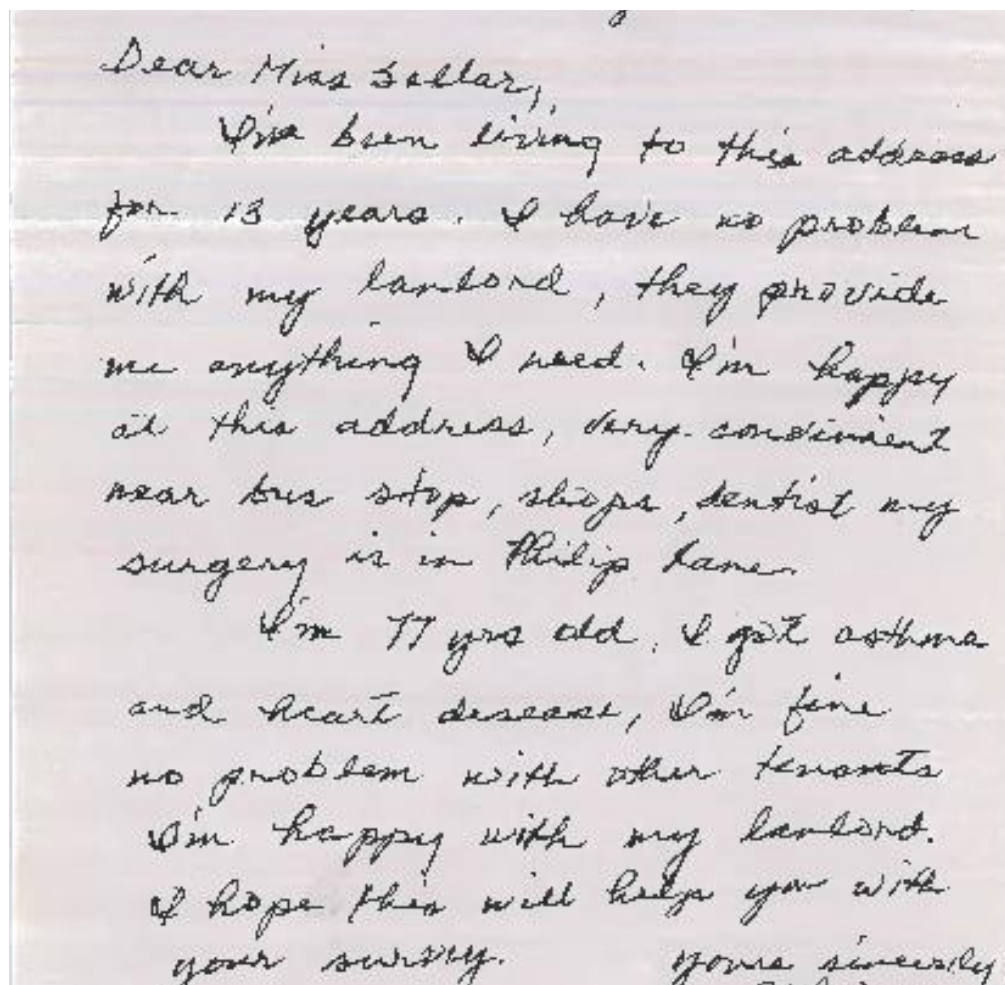 Dear Miss Sellar,
I've been living to this address
for 13 years. I have no problem
with my lanlord, they provide
me anything I need. I'm happy
at this address, very convinient
near bus stop, shops, dentist my
surgery is in Philip Lane.
I'm 77 yrs old. I got asthma
and heart desease, I'm fine
no problem with other tenants
I'm happy with my lanlord.
I hope this will help you with
your survey. yours sincerely